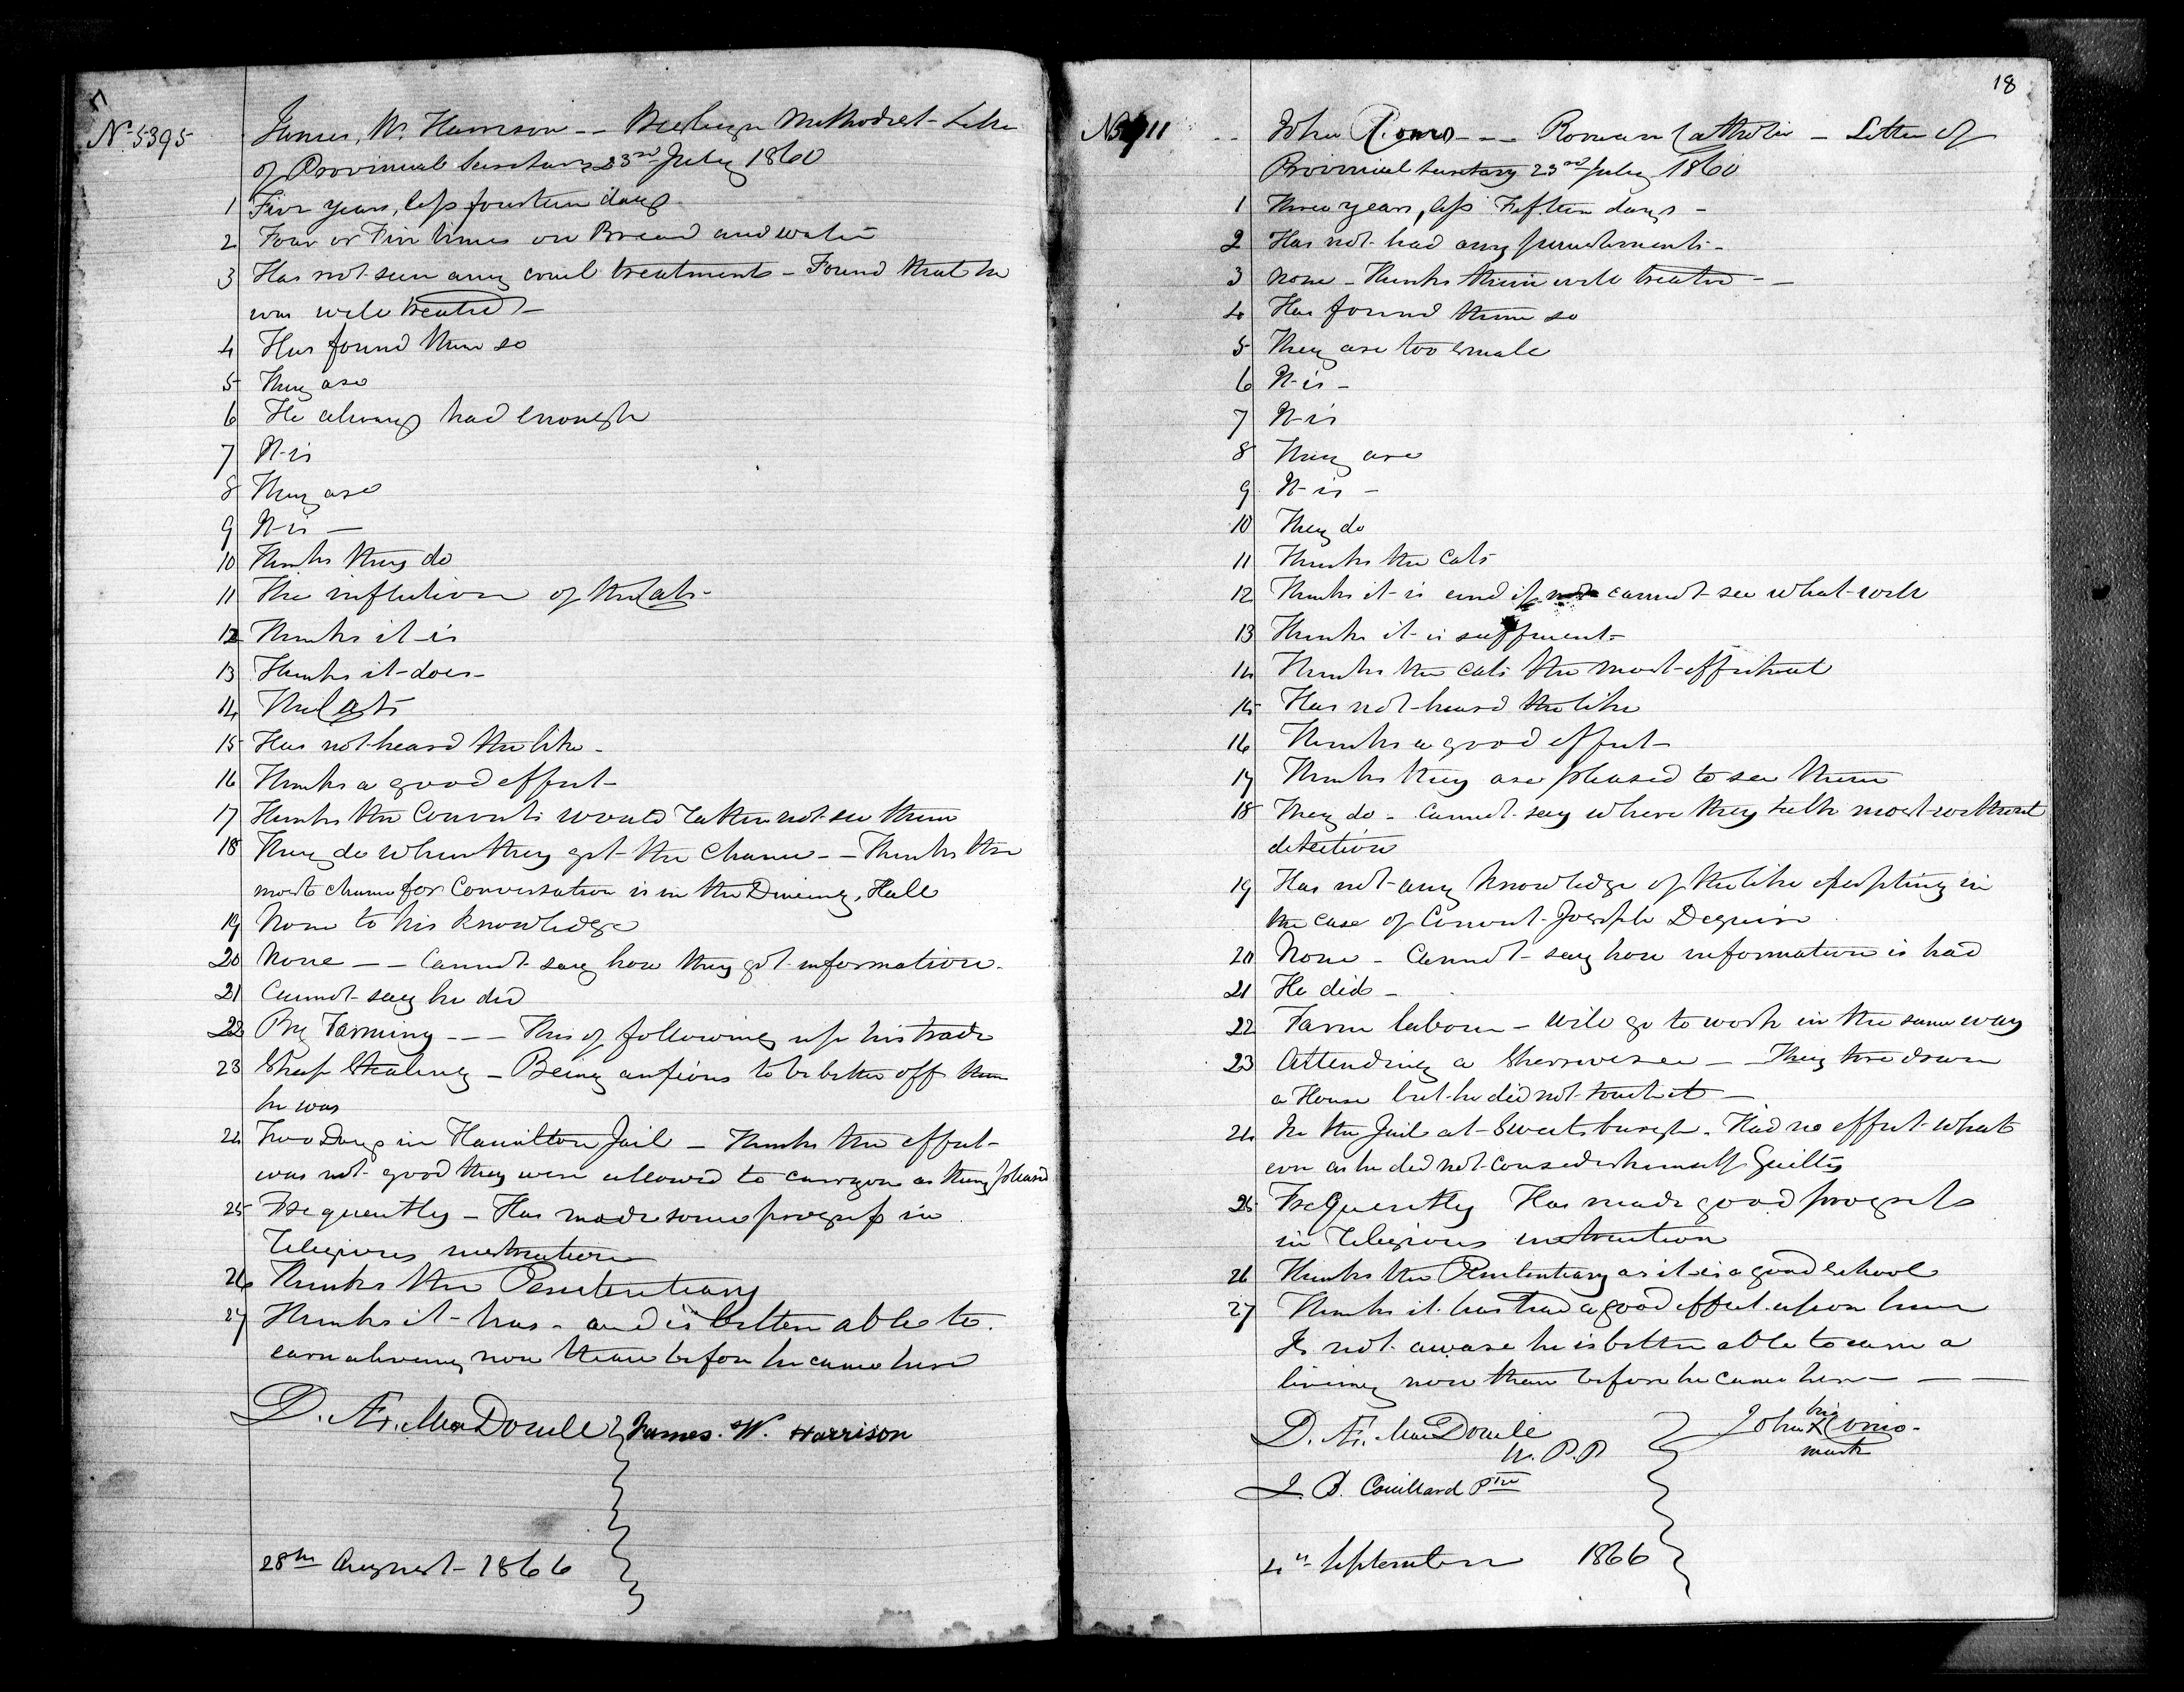 No. 5395
James, W. Harrison -- Wesleyan Methodist - Letter
of Provincial Secretary 23rd July 1860
1 Five years, less fourteen days
2 Four or Five times on Bread and water
3 Has not seen any cruel treatments - Found that he
was well treated -
4 Has found them so
5 They are
6 He always had enough
7 It is
8 They are
9 It is -
10 Thinks they do
11 The infliction of the Cats -
12 Thinks it is
13 Thinks it does -
14 The Cats
15 Has not heard the like -
16 Thinks a good effect -
17 Thinks the Convicts would rather not see them
18 They do when they get the Chance -- Thinks the
most chance for Conversation is in the Dining, Hall
19 None to his knowledge
20 None -- Cannot say how they get information.
21 Cannot say he did
22 By Farming --- This of following up his trade
23 Sheep Stealing - Being anxious to be better off than
he was
24 Two Days in Hamilton Jail - Thinks the effect
was not good they were allowed to carry on as they pleased
25 Frequently - Has made some progress in
religious instruction
26 Thinks the Penitentiary
27 Thinks it has - and is better able to
earn a living now than before he came here
D. Æ. MacDonell James. W. Harrison
28th August - 1866
18
John -- Roman Catholic - Letter of
Provincial Secretary 23rd July 1860
1 Three years, less Fifteen days -
2 Has not had any punishments -
3 None - Thinks them well treated --
4 Has found them so
5 They are too small
6 It is -
7 It is
8 They are
9 It is -
10 They do
11 Thinks the Cats
12 Thinks it is and if not cannot see what will
13 Thinks it is sufficient -
14 Thinks the Cats the most effectual
15 Has not heard the like
16 Thinks a good effect -
17 Thinks they are pleased to see them
18 They do - Cannot say where they talk most without
detection
19 Has not any knowledge of the like excepting in
the case of Convict Joseph Deguise
20 None - Cannot say how information is had
21 He did -
22 Farm labour - Will go to work in the same way
23 Attending a -- They tore down
a House but he did not touch it -
24 In the Jail at Sweetsburgh. Had no effect what
ever as he did not consider himself Guilty
25 Frequently Has made good progress
in religious instruction
26 Thinks the Penitentiary as it is a good School
27 Thinks it has had a good effect upon him
Is not aware he is better able to earn a
living now than before he came here - - -
D. Æ. MacDonell John his X mark
W. P. P
J. B. Couillard Ptre
4th September 1866